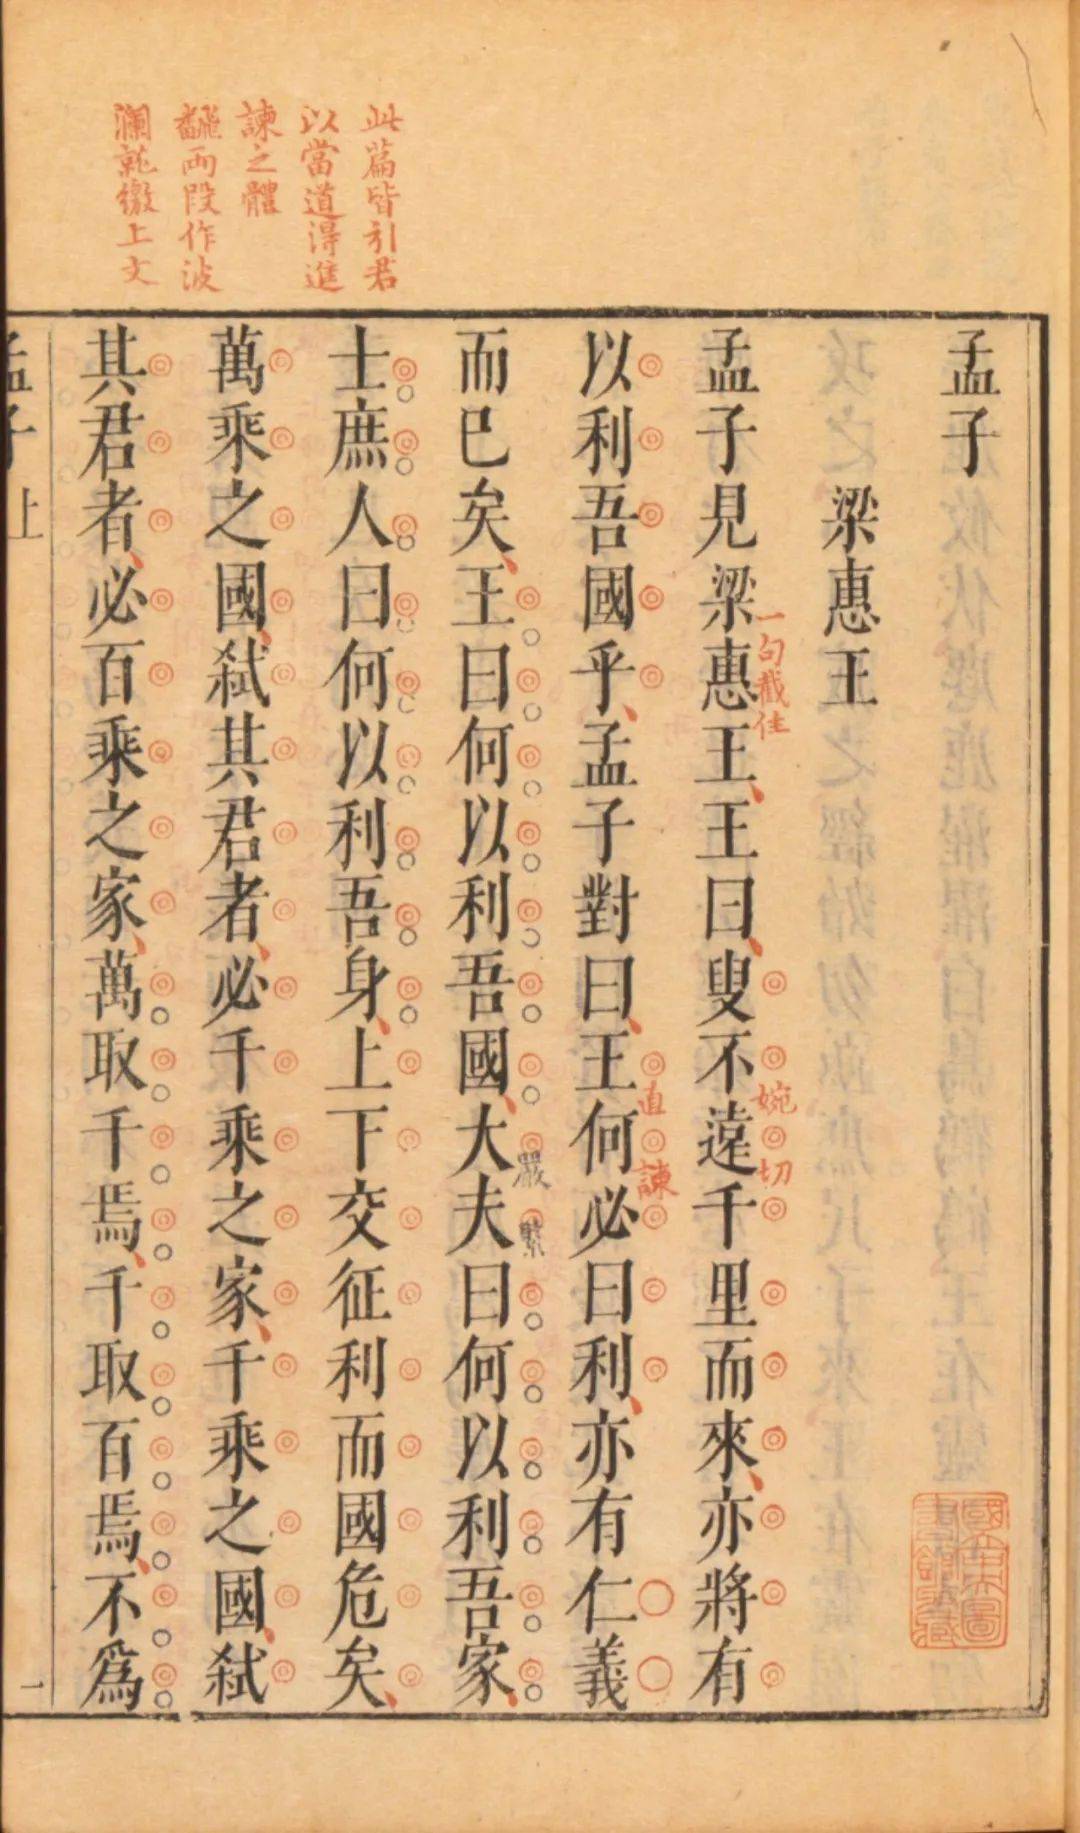 此篇皆引君
以當道得進
諫之體
翻兩段作波
瀾就繳上文
孟子
梁惠王
孟子見梁惠王王曰叟不遠千里而來亦將有
一句截住
婉切
以利吾國乎孟子對曰王何必曰利亦有仁義
直諫
而已矣王曰何以利吾國大夫曰何以利吾家
嚴緊
士庶人曰何以利吾身上下交征利而國危矣
萬乘之國弑其君者必千乘之家千乘之國弑
其君者必百乘之家萬取千焉千取百焉不爲
孟子上
一